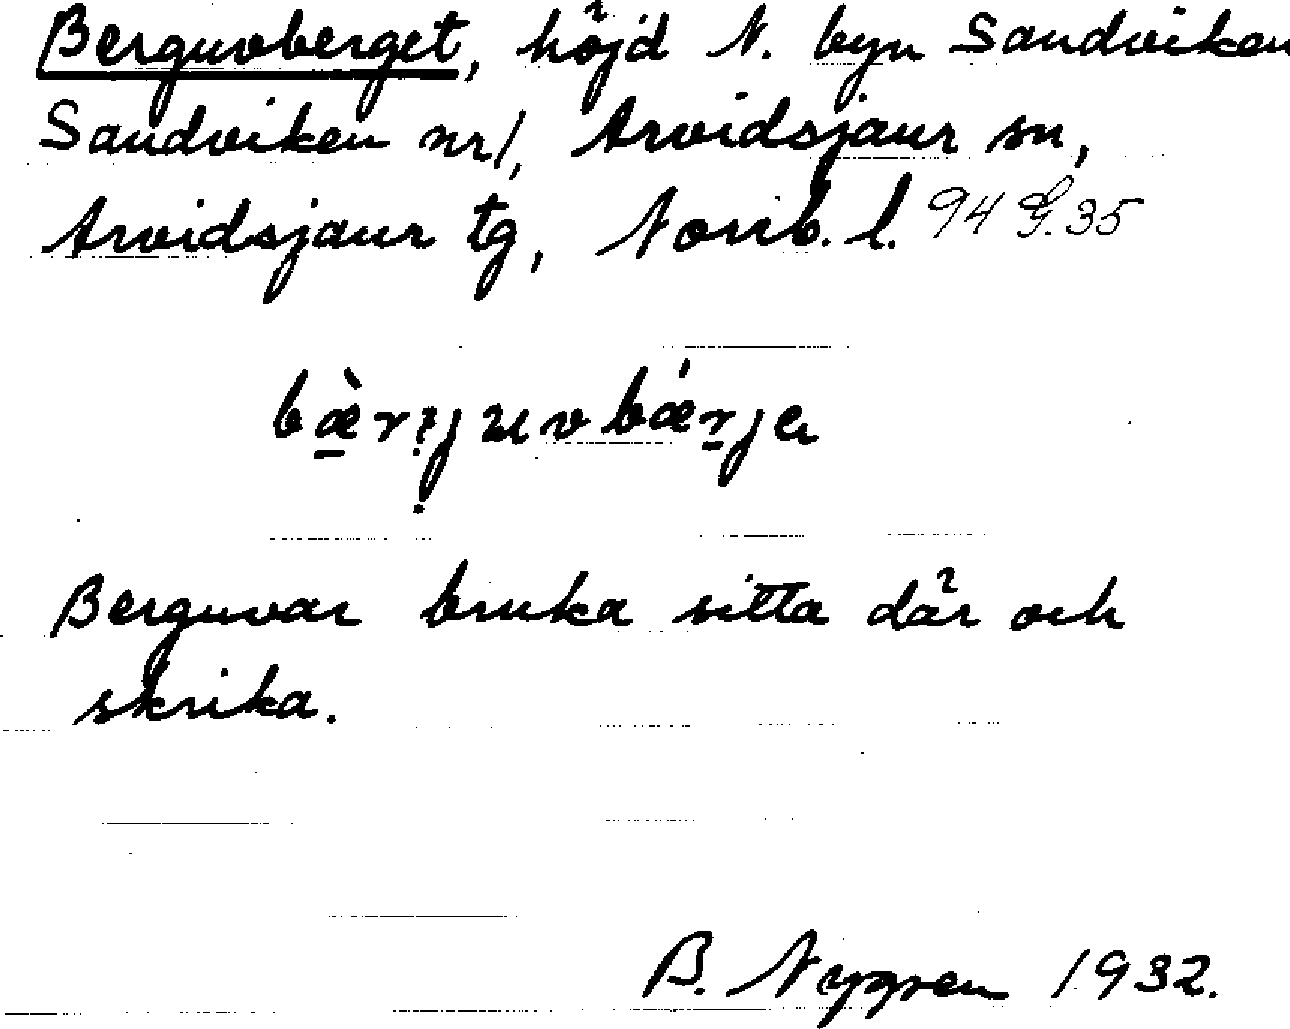 Berguvberget, höjd N. byn Sandviken
Sandviken nr 1, Arvidsjaur sn,
Arvidsjaur tg, Norrb. l.
Berguvar bruka sitta där och
skrika.
B. Nygren 1932.